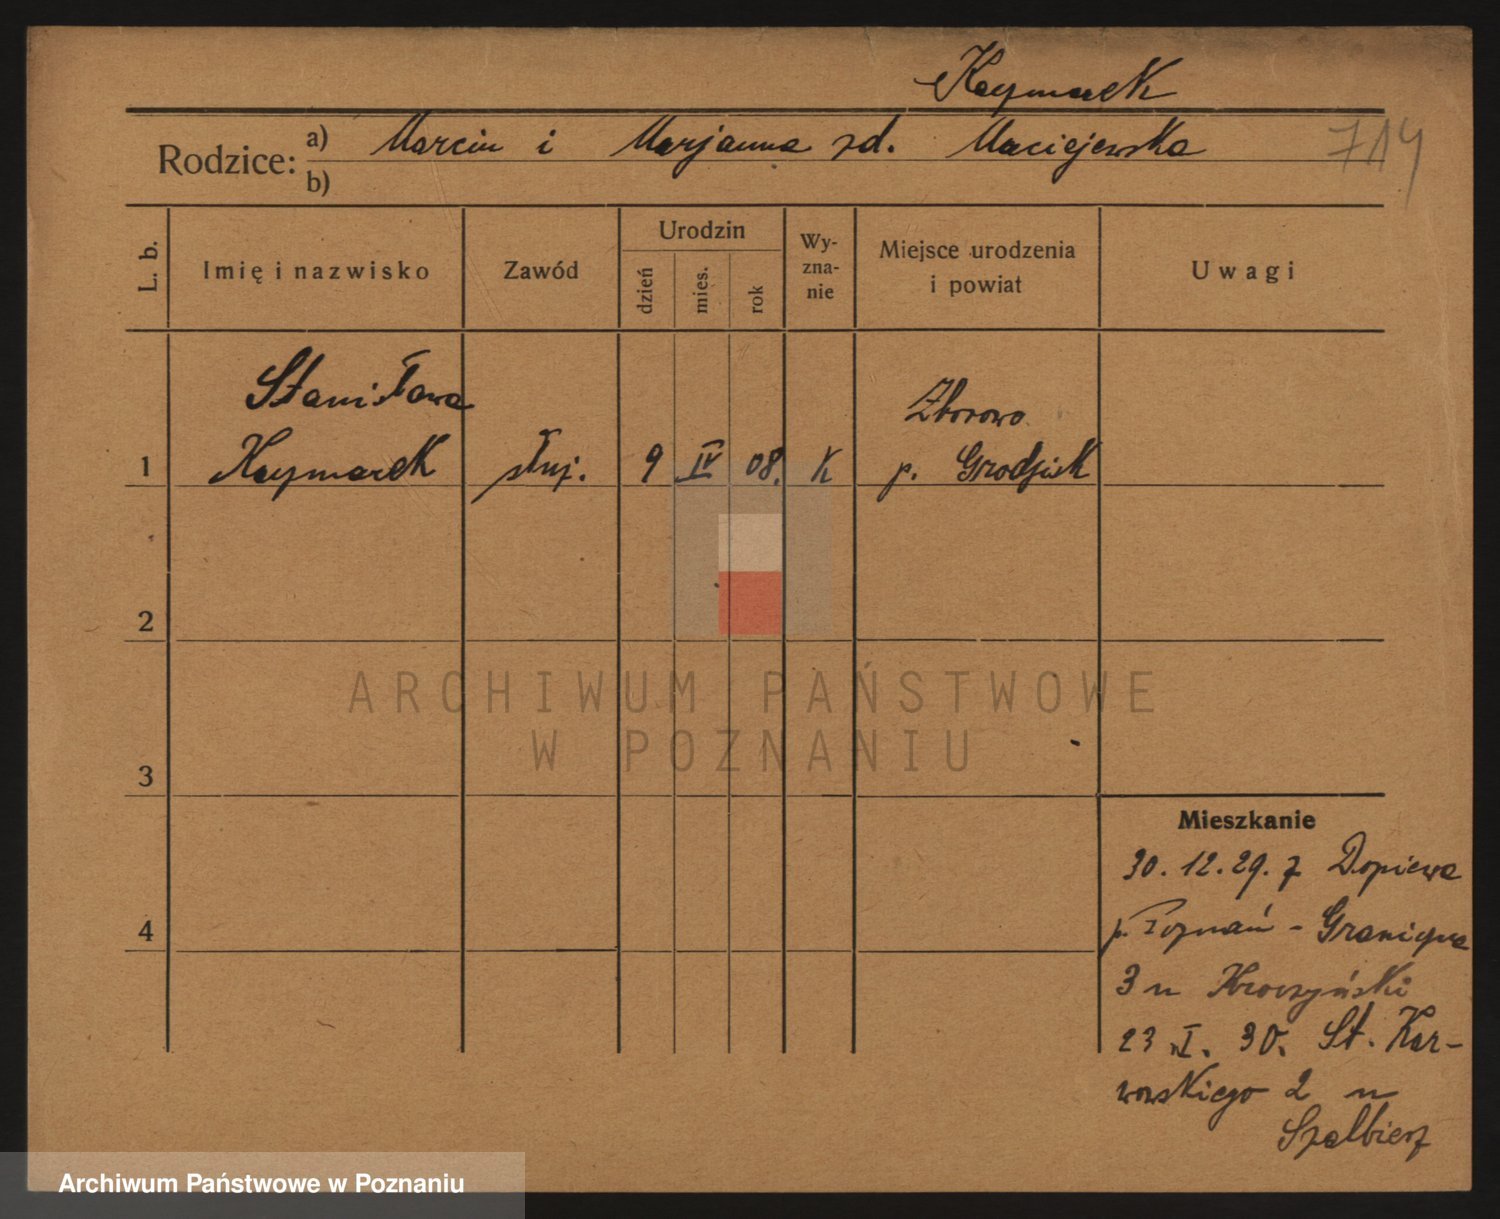 Kaymarek
Rodzice:
a) Marcin i Marjanna zd. Maciejewska
714
b)
L. b.
Imię i nazwisko
Zawód
Urodzin
dzień
mies.
rok
Wy-
zna-
nie
Miejsce urodzenia
i powiat
Uwagi
Stanisława
Zborowo
1 Kaymarek służ. 9 IV 08. K p. Grodzisk
2
ARCHIWUM PAŃSTWOWE
W POZNANIU
3
Mieszkanie
30. 12. 29. z Dopiewa
4
p. Poznań - Graniczna
3 u
23. I. 30. St. Kar-
wowskiego 2 u
Szalbierz
Archiwum Państwowe w Poznaniu